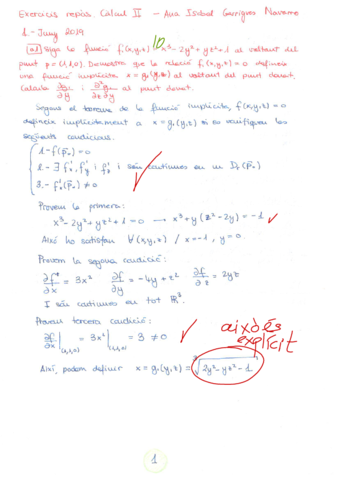 Exercicis repàs. Càlcul II - Ana Isabel Garrigues Navarro
1.- Juny 2019
a1 Siga la funció f(x,y,z) = x³-2y²+yz²+1 al voltant del
punt p = (1,1,0). Demostra que la relació f(x,y,z) = 0 defineix
una funció implícita x = g₁(y,z) al voltant del punt donat.
Calcula ∂g₁/∂y i ∂²g₁/∂z∂y al punt donat.
10
Segons el teorema de la funció implícita, f(x,y,z) = 0
defineix implícitament a x = g₁(y,z) si es verifiquen les
següents condicions:
1.- f(p₀)
2.- ∃ f'x, f'y i f'z i són contínues en un Dr(p₀)
3.- f'x(p₀) ≠ 0
Provem la primera:
x³-2y²+yz²+1 = 0 → x³+y(z²-2y) = -1
Així ho satisfan ∀(x,y,z) / x=-1, y=0.
Provem la segona condició:
∂f/∂x = 3x² ∂f/∂y = -4y+z² ∂f/∂z = 2yz
I són contínues en tot ℝ³.
Provem tercera condició:
∂f/∂x|(1,1,0) = 3x²|(1,1,0) = 3 ≠ 0
això és
explícit
Així, podem definir x = g₁(y,z) = ∛(2y²-yz²-1)
1